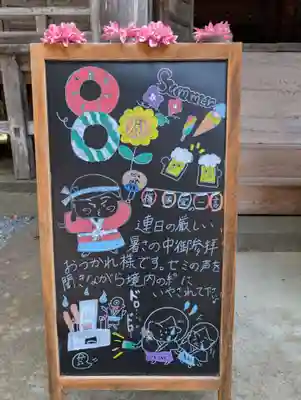 Summer
連日の厳しい
暑さの中御参拝
おつかれ様です。セミの声を
聞きながら境内の緑に
いやされて下さい